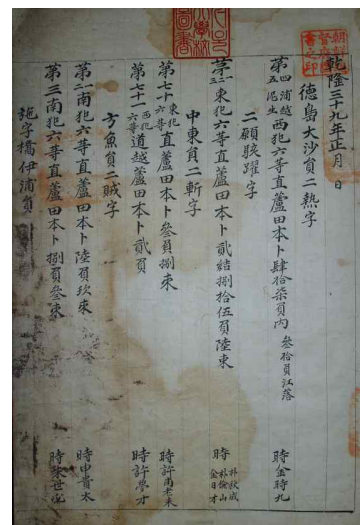 乾隆三十九年正月 日
德島大沙員二熱字
第四浦越五泥生西犯六等直蘆田本卜肆拾柒負內 叁拾負江落 時金時九
二願駭躍字
東犯六等直蘆田本卜貳結捌拾伍負陸束 時朴秋成朴儉山金日才
中東員二斬字
第七十東犯六等直蘆田本卜叁負捌束 時許
第七十一西犯六等道越蘆田本卜貳負 時許學才
方魚員二賊字
第二南犯六等直蘆田本卜陸負玖束 時申貴太
第三南犯六等直蘆田本卜捌負叁束 時陳世
施字橋伊浦員